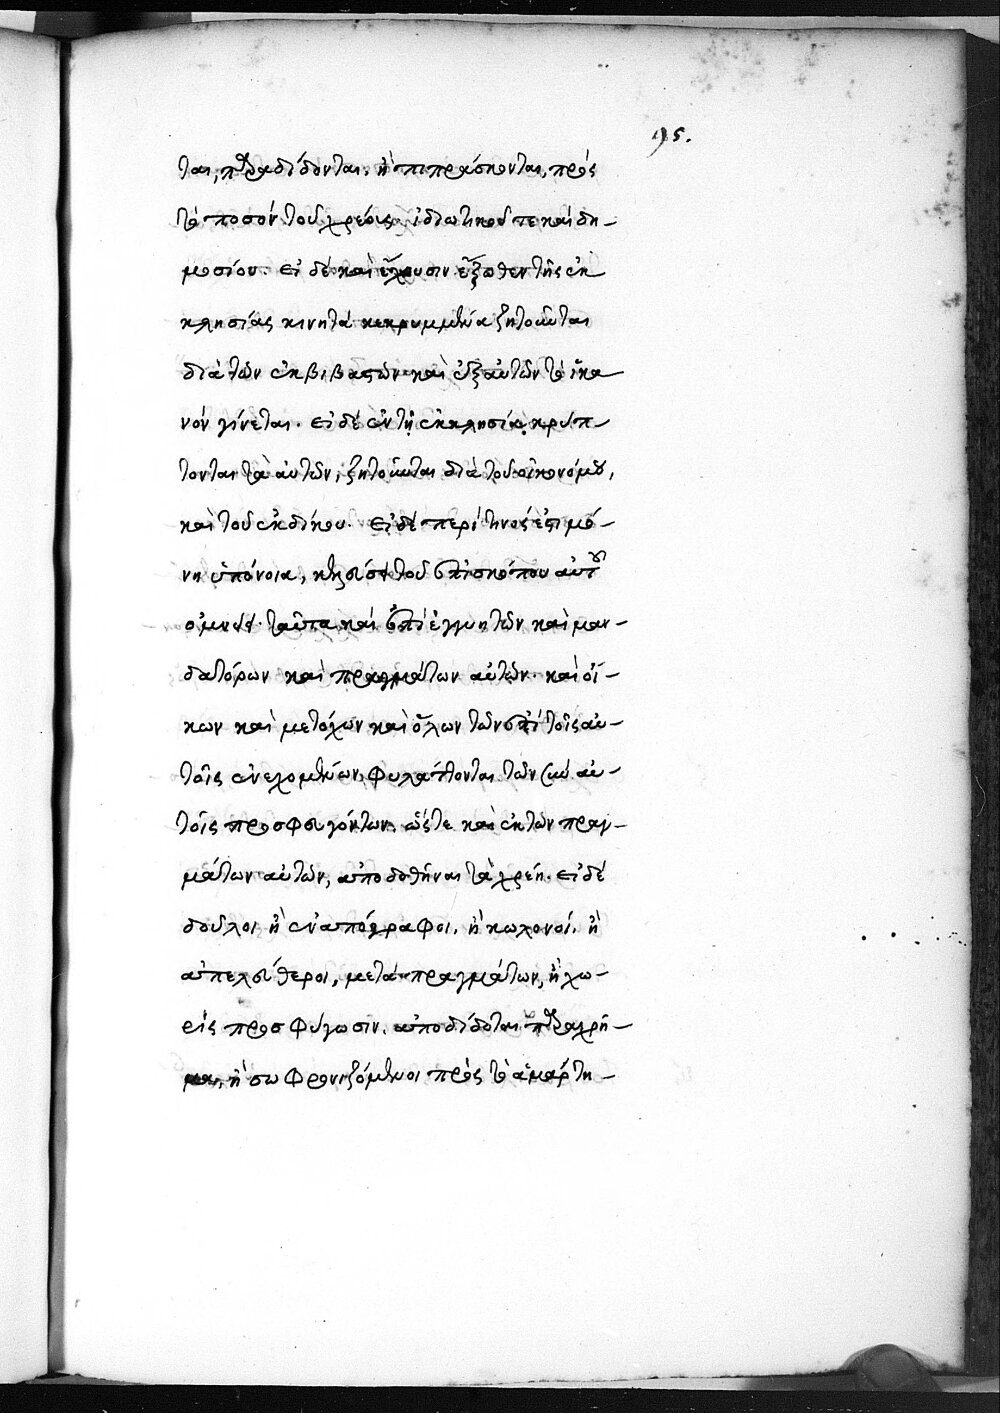 195.
ται, παραδίδονται, ἢ πιπράσκονται, πρὸς
τὸ ποσὸν τοῦ χρέους ἰδιωτικοῦ τε καὶ δη-
μοσίου. εἰ δὲ καὶ ἔχουσιν ἔξωθεν τῆς ἐκ
κλησίας κινητὰ κεκρυμμένα ζητοῦνται
διὰ τῶν ἐκβιβαστῶν καὶ ἐξ αὐτῶν τὸ ἱκα
νὸν γίνεται. εἰ δὲ ἐν τῇ ἐκκλησίᾳ κρύπ-
τονται τὰ αὐτῶν, ζητοῦνται διὰ τοῦ οἰκονόμου,
καὶ τοῦ ἐκδίκου. εἰ δὲ περί τινός ἐστι μό-
νη ὑπόνοια, τοῦ ἐπισκόπου αὐτοῦ
ταῦτα καὶ ἐπὶ ἐγγυητῶν καὶ μαν-
δατόρων καὶ πραγμάτων αὐτῶν. καὶ οἴ-
κων καὶ μετόχων καὶ ὅλων τῶν ἐπὶ τοῖς αὐ-
τοῖς ἐνεχομένων, φυλάττονται τῶν αὐ-
τοῖς προσφευγόντων. ὥστε καὶ ἐκ τῶν πραγ-
μάτων αὐτῶν, ἀποδοθῆναι τὰ χρέη. εἰ δὲ
δοῦλοι ἢ ἐναπόγραφοι, ἢ κωλονοί, ἢ
ἀπελεύθεροι, μετὰ πραγμάτων, ἢ χω-
ρὶς προσφύγωσιν, ἀποδίδοται παραχρῆ-
μα, ἢ σωφρονιζόμενοι πρὸς τὸ ἁμάρτη-